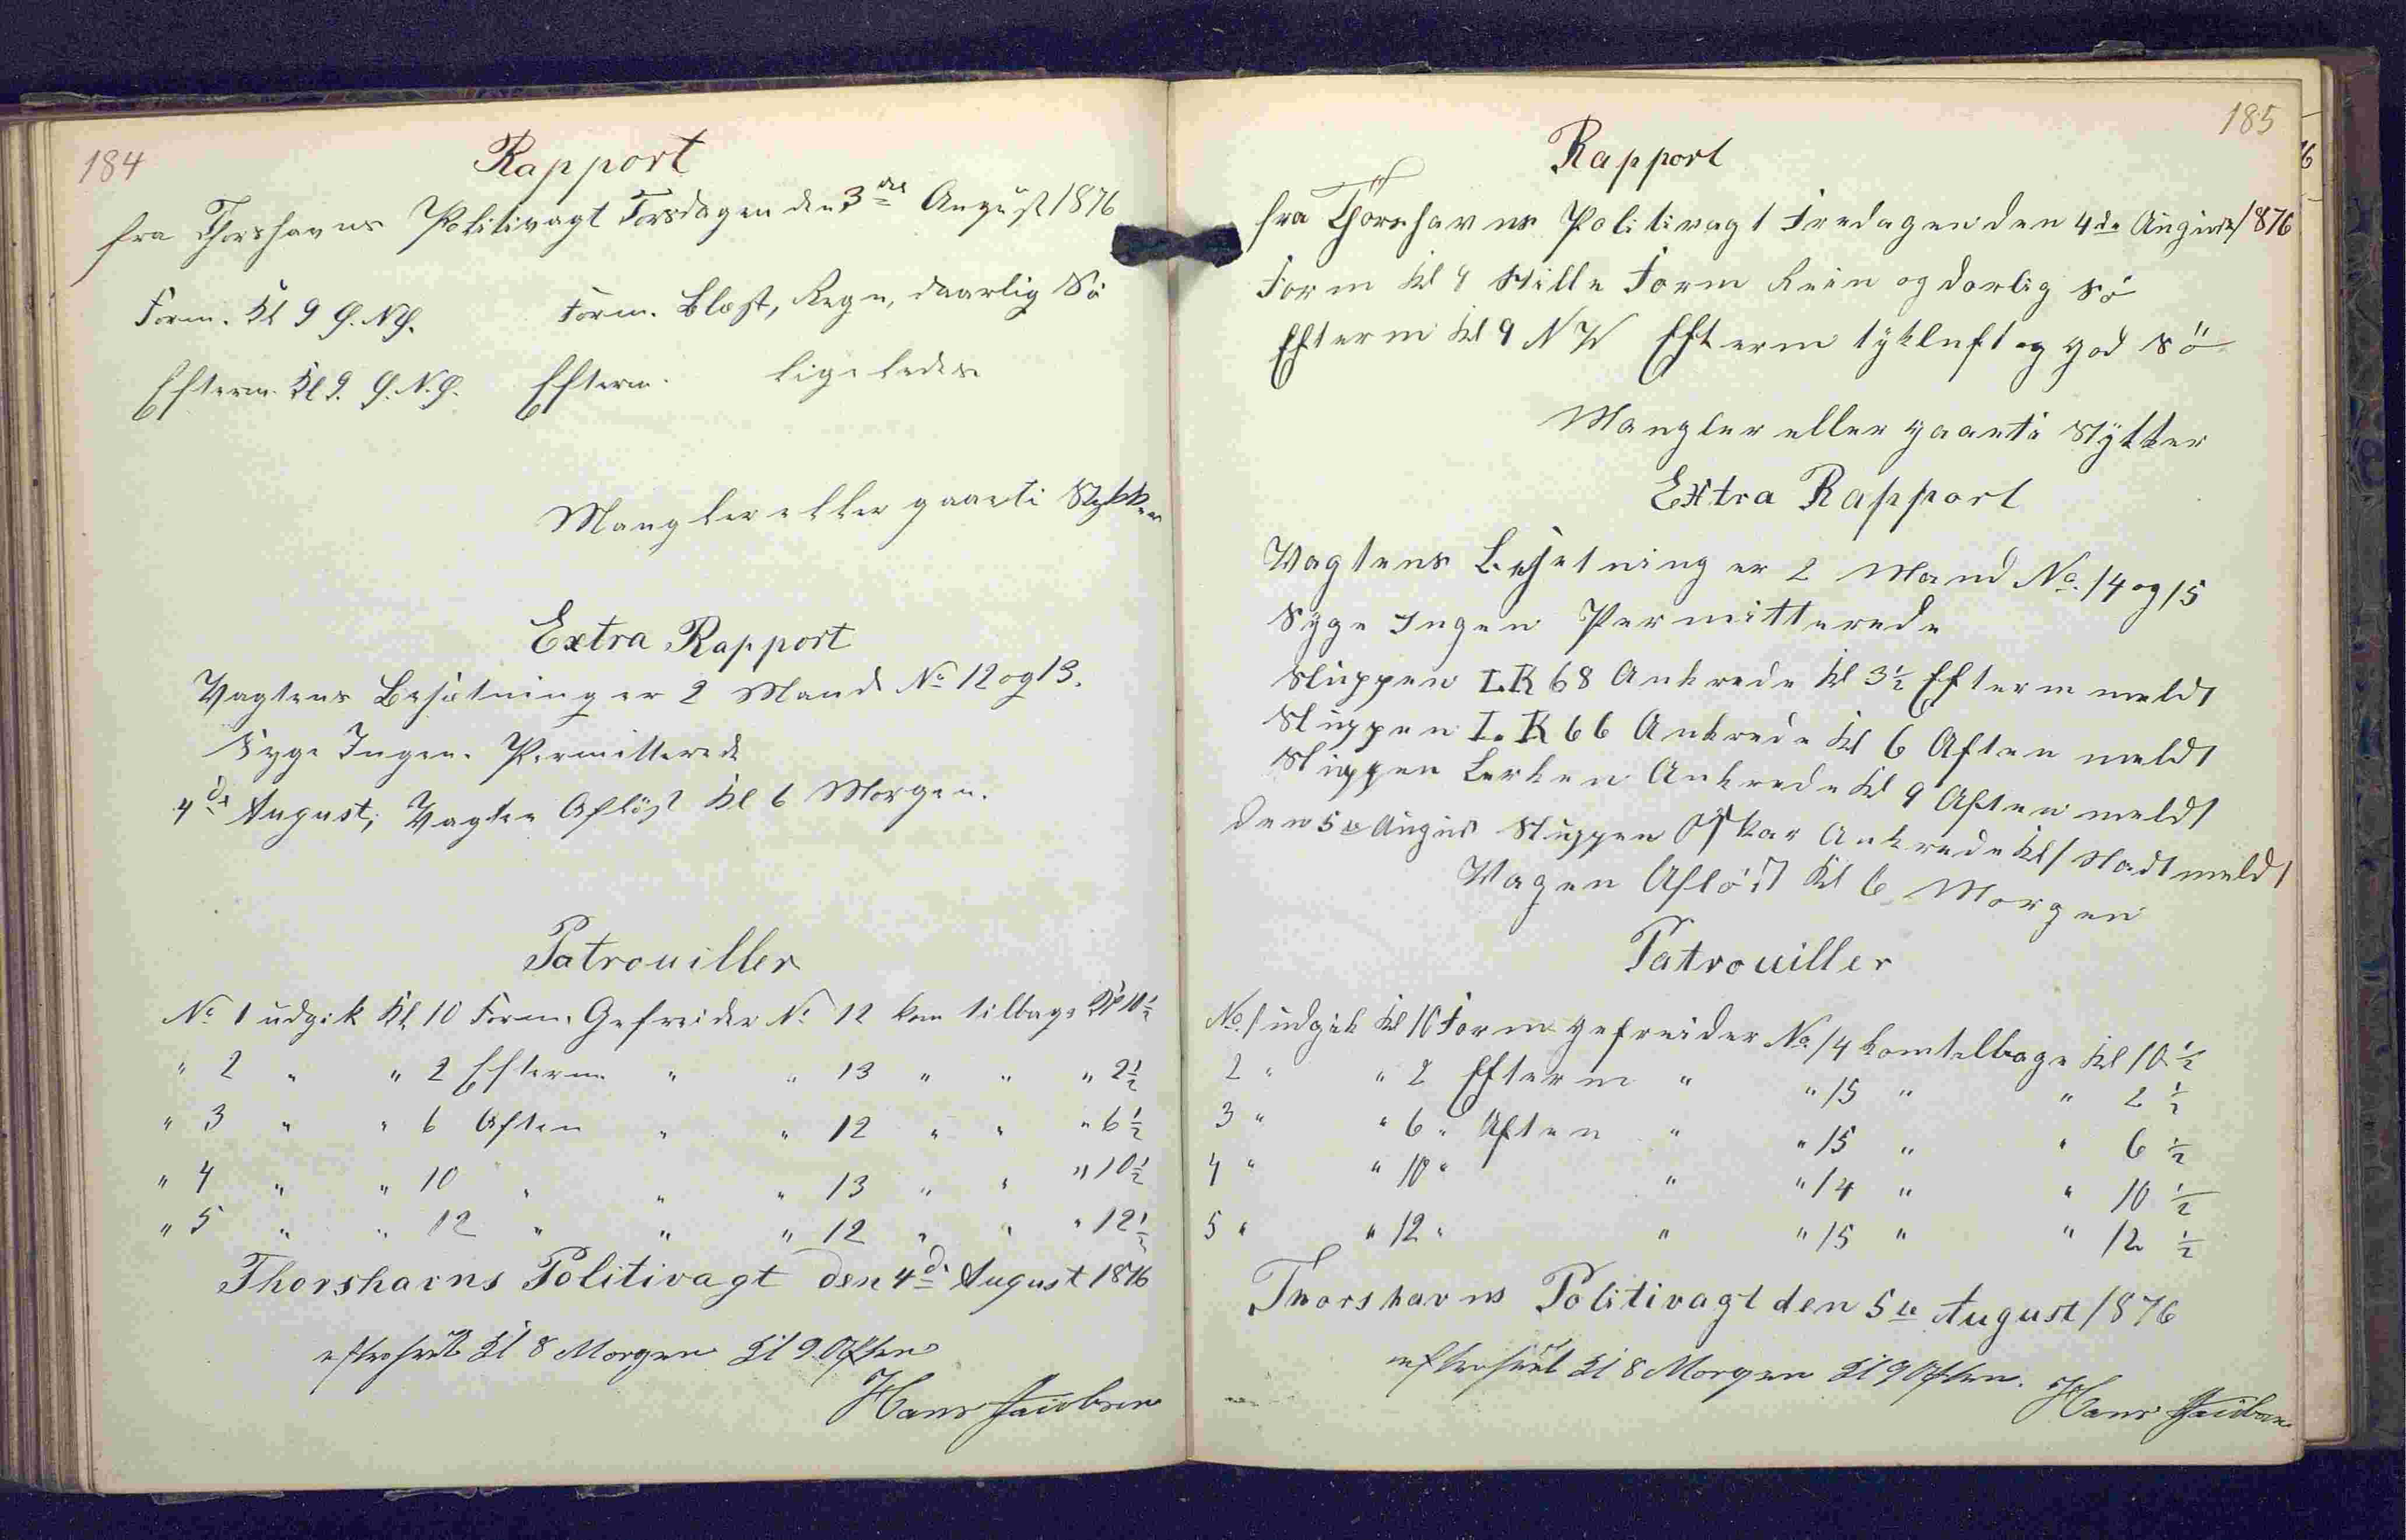 184
Rapport
fra Thorshavns Politivagt Torsdagen den 3die August 1876
Form. Kl 9 Ø.N.Ø. Form. Blæst, Regn, daarlig Sö
Efterm. Kl 9. Ø.N.Ø. Efterm. ligeledes
Mangler eller gaaet i Stykker
Extra Rapport
Vagtens Besætning er 2 Mand No 12 og 13.
Syge Ingen. Permitterede
4de August, Vagten Aflöst Kl 6 Morgen.
Patrouiller
No 1 udgik Kl 10 Form. Gefreider No 12 kom tilbage Kl 10½
" 2 " " 2 Efterm " " 13 " " " 2½
" 3 " " 6 Aften " " 12 " " " 6½
" 4 " " 10 " " " 13 " " " 10½
" 5 " " 12 " " " 12 " " " 12½
Thorshavns Politivagt den 4de August 1876
efterseet Kl 8 Morgen Kl 9 Aften
Hans Jacobsen
185
Rapport
fra Thorshavns Politivagt Fredagen den 4de August 1876
Form Kl 9 Stille Form Rein og darlig Sö
Efterm Kl 9 NV Efterm tykluft og god Sö
Mangler eller gaaet i Stykker
Extra Rapport
Vagtens Besetning er 2 Mand No. 14 og 15
Syge Ingen Permitterede
Sluppen L.K 68 Ankrede Kl 3½ Efterm meldt
Sluppen L.K 66 Ankrede Kl 6 Aften meldt
Sluppen Lerken Ankrede Kl 9 Aften meldt
den 5te August Sluppen Oskar Ankrede Kl 1 Nadt meldt
Vagen Aflöst Kl 6 Morgen
Patrouiller
No. 1 udgik Kl 10 Form gefreider No 14 kom telbage Kl 10½
2 " " 2 Efterm " " 15 " " 2½
3 " " 6 " Aften " " 15 " " 6½
4 " " 10 " " " 14 " " 10½
5 " " 12 " " " 15 " " 12½
Thorshavns Politivagt den 5te August 1876
efterseet Kl 8 Morgen Kl 9 Aften.
Hans Jacobsen